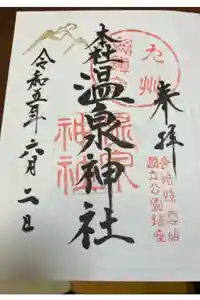 奉拝
九州
本社
温泉神社
令和五年六月二日
長崎県雲仙
国立公園鎮座